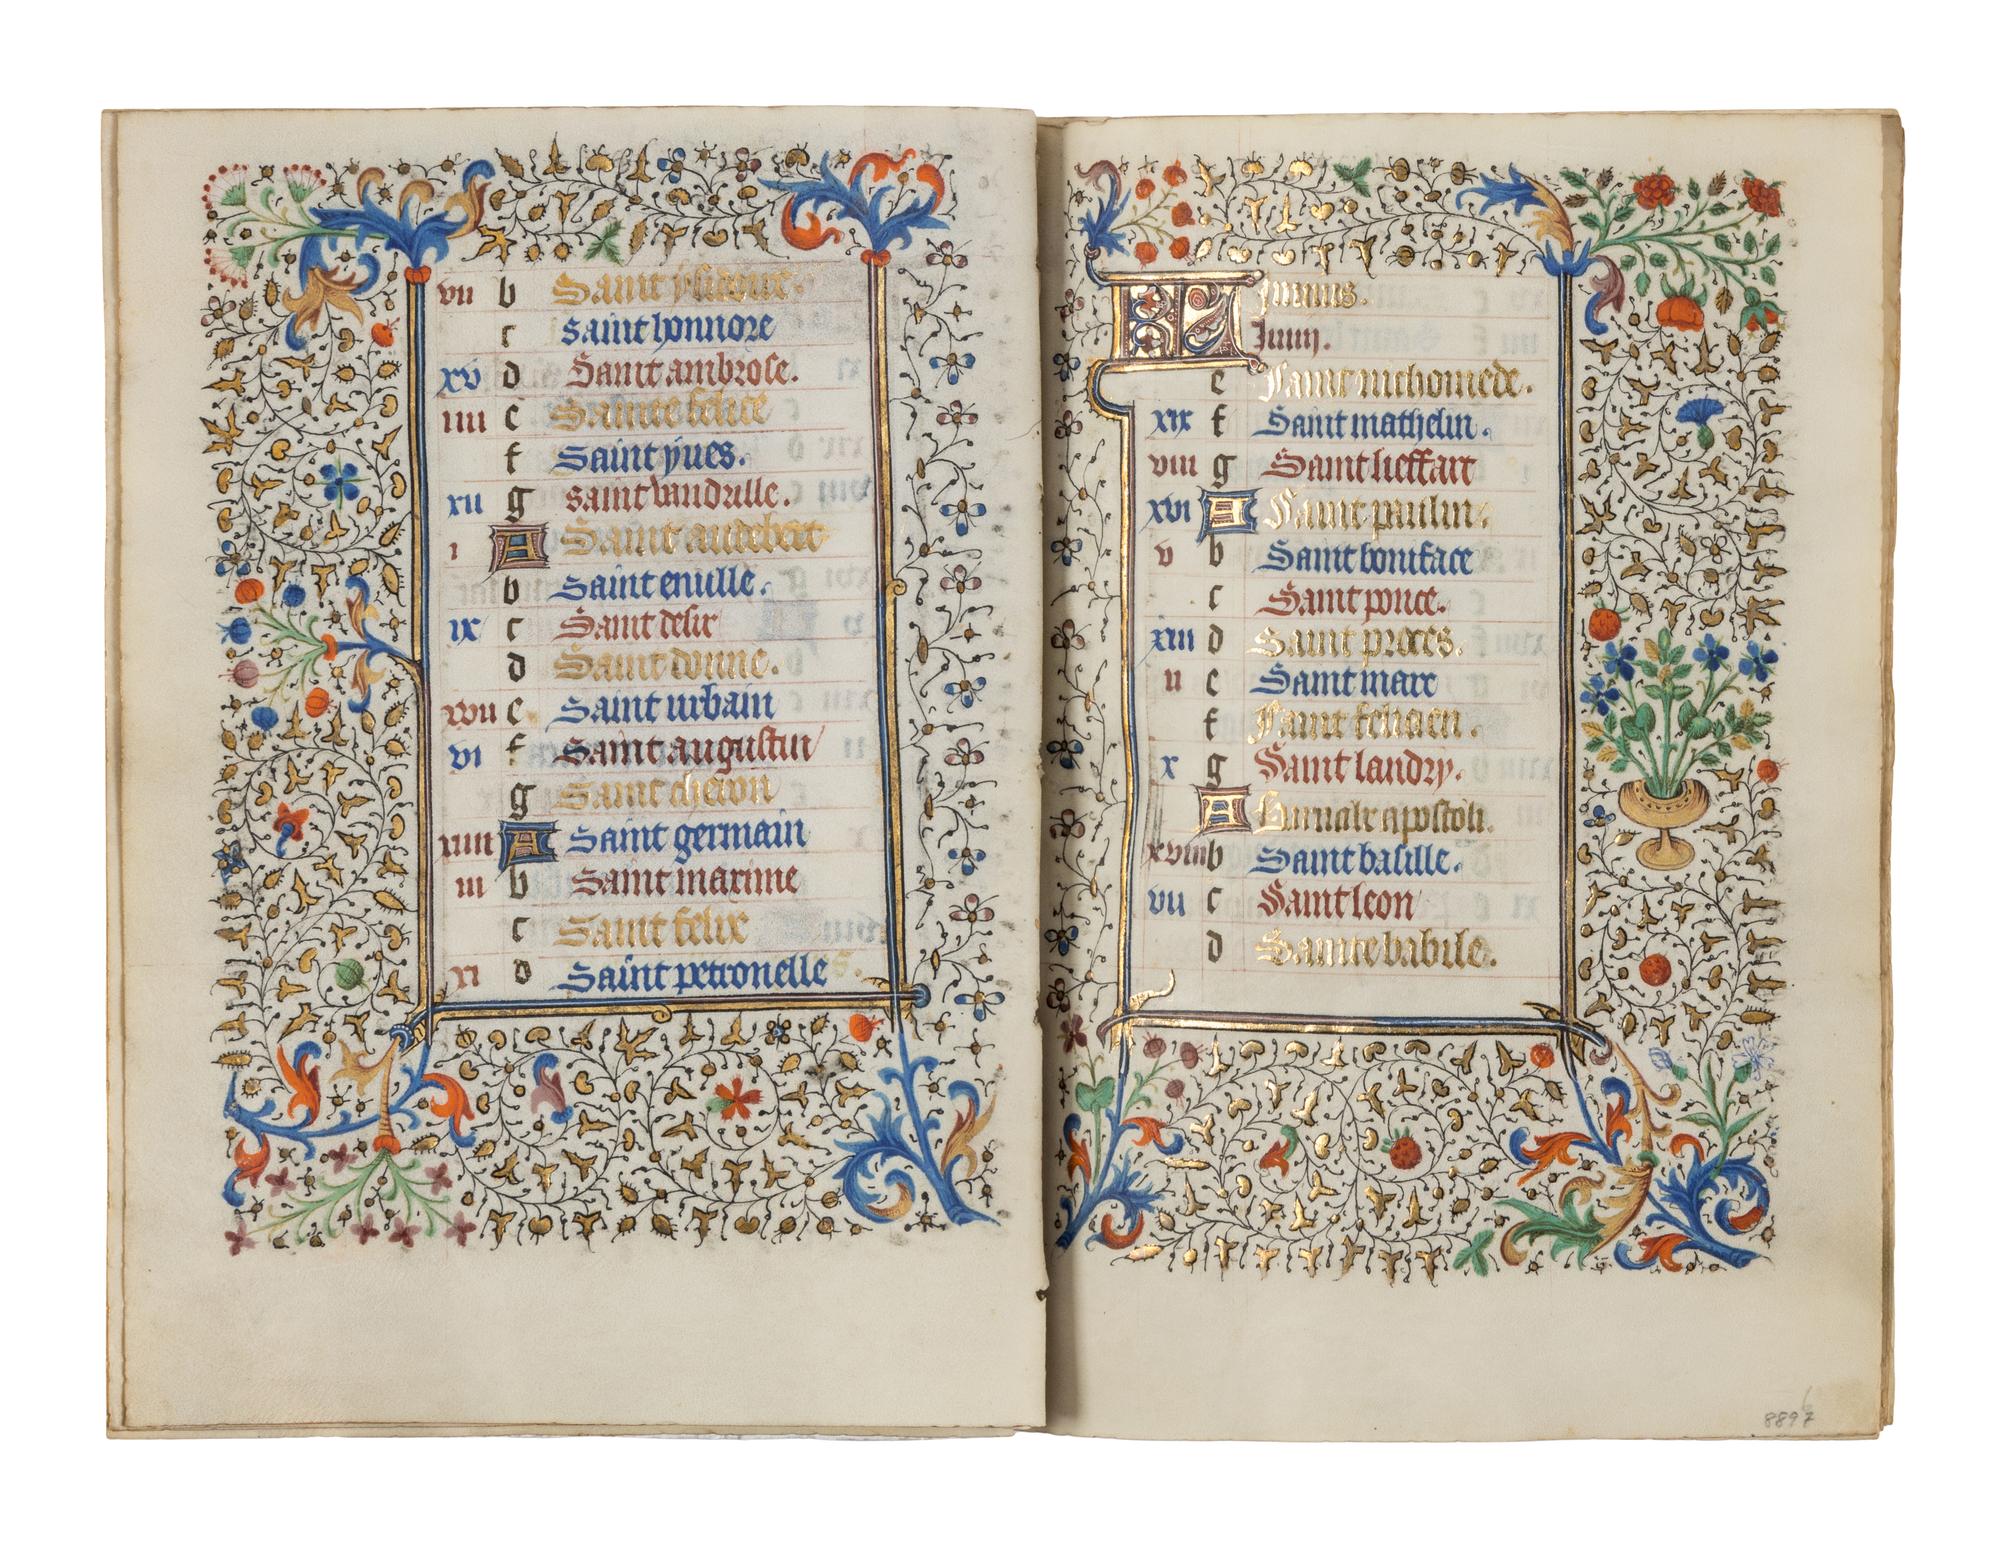 vii b Saint ysidoire.
c Saint honnore
xv d Saint ambrose.
iiii e Sainte felice
f Saint yues.
xii g saint vandrille.
i A Saint audebert
b Saint enulle.
ix c Saint desir
d Saint donne.
xvii e Saint urbain
vi f Saint augustin
g Saint cheron
xiiii A Saint germain
iii b Saint maxime
c Saint felix
xi d Saint petronelle
KL Junius.
Junij.
e Saint nichomede.
xix f Saint mathelin.
viii g Saint lieffart
xvi A Saint paulin.
v b Saint boniface
c Saint ponce.
xiii d Saint proces.
ii e Saint marc
f Saint felicien.
x g Saint landry.
A Barnabe apostoli.
xviii b Saint basille.
vii c Saint leon
d Sainte babile.
8897